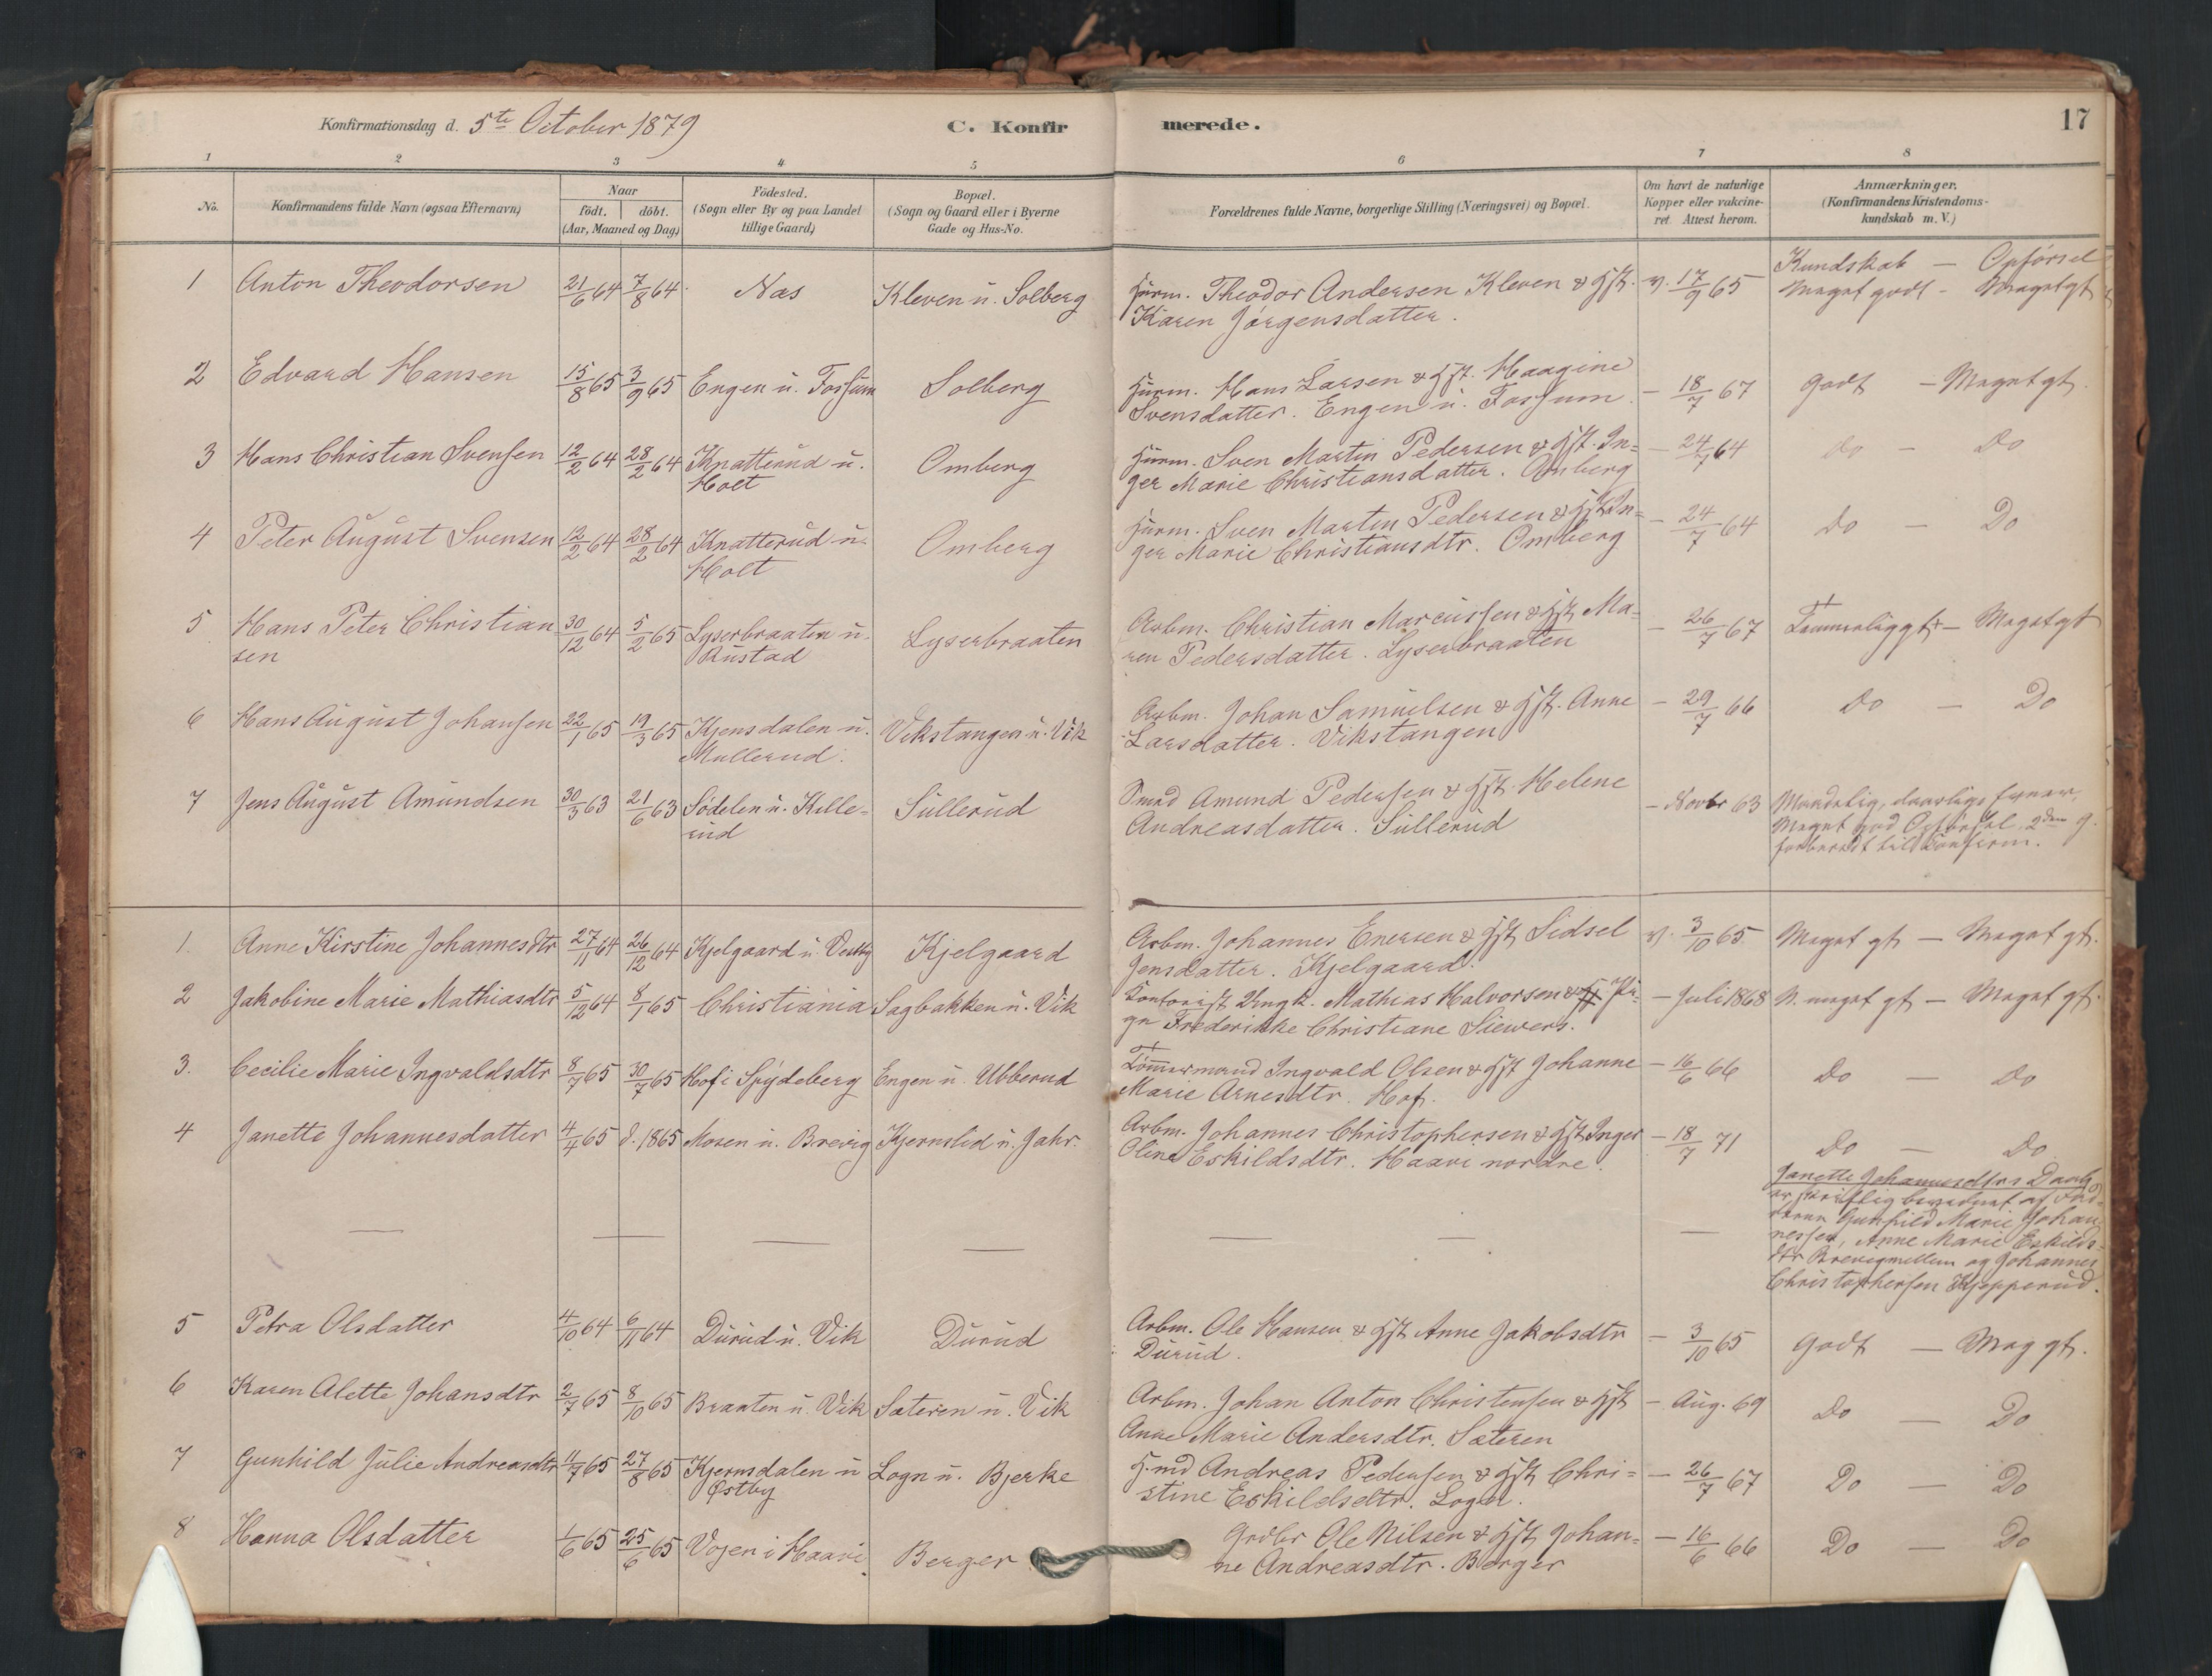 Konfirmationsdag d. 5te October 1879
C. Konfirmerede.
17
1 2 3 4 5 6 7 8
No.
Konfirmandens fulde Navn (ogsaa Efternavn)
Naar
födt. döbt.
(Aar, Maaned og Dag)
Födested.
(Sogn eller By og paa Landet
tillige Gaard)
Bopæl.
(Sogn og Gaard eller i Byerne
Gade og Hus-No.
Forældrenes fulde Navne, borgerlige Stilling (Næringsvei) og Bopæl.
Om havt de naturlige
Kopper eller vakcine-
ret Attest herom.
Anmærkninger.
(Konfirmandens Kristendoms-
kundskab m. V.)
Kundskab — Opførsel
1 Anton Theodorsen 21/6 64 7/8 64 Nas Kleven u. Solberg Hurm. Theodor Andersen Kleven & Hst. v. 17/9 65 Meget godt - Meget gt
Karen Jørgensdatter.
2 Edvard Hansen 15/8 65 3/9 65 Engen u. Fossum Solberg Hurm. Hans Larsen & Hst. Haagine — 18/7 67 Godt — Meget gt.
Svensdatter. Engen u. Fossum.
3 Hans Christian Svensen 12/2 64 28/2 64 Knatterud u. Omberg Hurm. Sven Martin Pedersen & Hst. In= — 24/7 64 Do — Do
Holt ger Marie Christiansdatter. Omberg
4 Peter August Svensen 12/2 64 28/2 64 Knatterud u. Omberg Hurm. Sven Martin Pedersen & Hst In= — 24/7 64 Do — Do
Holt ger Marie Christiansdtr. Omberg
5 Hans Peter Christian 30/12 64 5/2 65 Lyserbraaten u. Lyserbraaten Arbm. Christian Marcussen & Hst Ma= — 26/7 67 Temmelig gt — Meget gt
sen Rustad ren Pedersdatter. Lyserbraaten
6 Hans August Johansen 22/1 65 19/3 65 Kjensdalen u. Vikstangen u. Vik Arbm. Johan Samuelsen & Hst. Anne — 29/7 66 Do — Do
Mullerud. Larsdatter. Vikstangen
7 Jens August Amundsen 30/3 63 21/6 63 Sødelen u. Kille= Sullerud Smed Amund Pedersen & Hst. Helene — Novbr 63 Maadelig, daarlige Evner.
rud Andreasdatter. Sullerud Meget god Opførsel. 2den G.
forberedt til Konfirm.
1. Anne Kirstine Johannesdtr 27/11 64 26/12 64 Kjelgaard u. Vestby Kjelgaard Arbm. Johannes Enersen & Hst Sidsel v. 3/10 65 Meget gt — Meget gt.
Jensdatter. Kjelgaard.
2 Jakobine Marie Mathiasdtr 5/12 64 8/1 65 Christiania Sagbakken u. Vik Kontorist Ungk. Mathias Halvorsen & Pi= — Juli 1868 N. meget gt — Meget gt.
ge Frederikke Christiane Siewers.
3. Cecilie Marie Ingvaldsdtr 8/7 65 30/7 65 Hof i Spydeberg Engen u. Ubberud Tømmermand Ingvald Olsen & Hst Johanne — 16/6 66 Do — Do
Marie Arnesdtr. Hof.
4 Janette Johannesdatter 4/4 65 d. 1865 Mosen u. Brevig Kjernslid u. Jahr. Arbm. Johannes Christophersen & Hst Inger — 18/7 71 Do — Do
Oline Eskildsdtr. Haavi nordre.
Janette Johannesdtrs Daab
er skriftlig bevidnet af Fad=
derne Gunhild Marie Johan
nessen, Anne Marie Eskilds=
dtr Brevigmellem og Johannes
Christophersen Kjepperud.
5 Petra Olsdatter 4/10 64 6/11 64 Durud u. Vik Durud Arbm. Ole Hansen & Hst Anne Jakobsdtr — 3/10 65 Godt — Meg gt.
Durud.
6 Karen Alette Johansdtr 2/7 65 8/10 65 Braaten u. Vik Sateren u. Vik Arbm. Johan Anton Christensen & Hst — Aug. 69 Do — Do
Anne Marie Andersdtr. Sateren
7 Gunhild Julie Andreasdtr 11/7 65 27/8 65 Kjernsdalen u Logn u. Bjerke H.md Andreas Pedersen & Hst Chri= — 26/7 67 Do — Do
Østby stine Eskildsdtr. Logn.
8 Hanna Olsdatter 1/6 65 25/6 65 Vojen i Haavi Berger Grdbr Ole Nilsen & Hst Johan= — 16/6 66 Do — Do
ne Andreasdtr. Berger